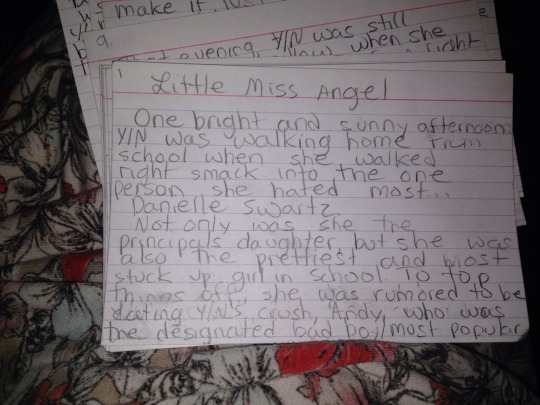 make it.
2
9.
Y/N was still
evening,
when she
right
1
Little Miss Angel
One bright and sunny afternoon
Y/N was walking home from
school when she walked
right smack into the one
person she hated most...
Danielle Swartz
Not only was she the
principals daughter, but she was
also the prettiest and most
stuck up girl in school To top
things off, she was rumored to be
dating Y/N's crush, Andy, who was
the designated bad boy/most popular